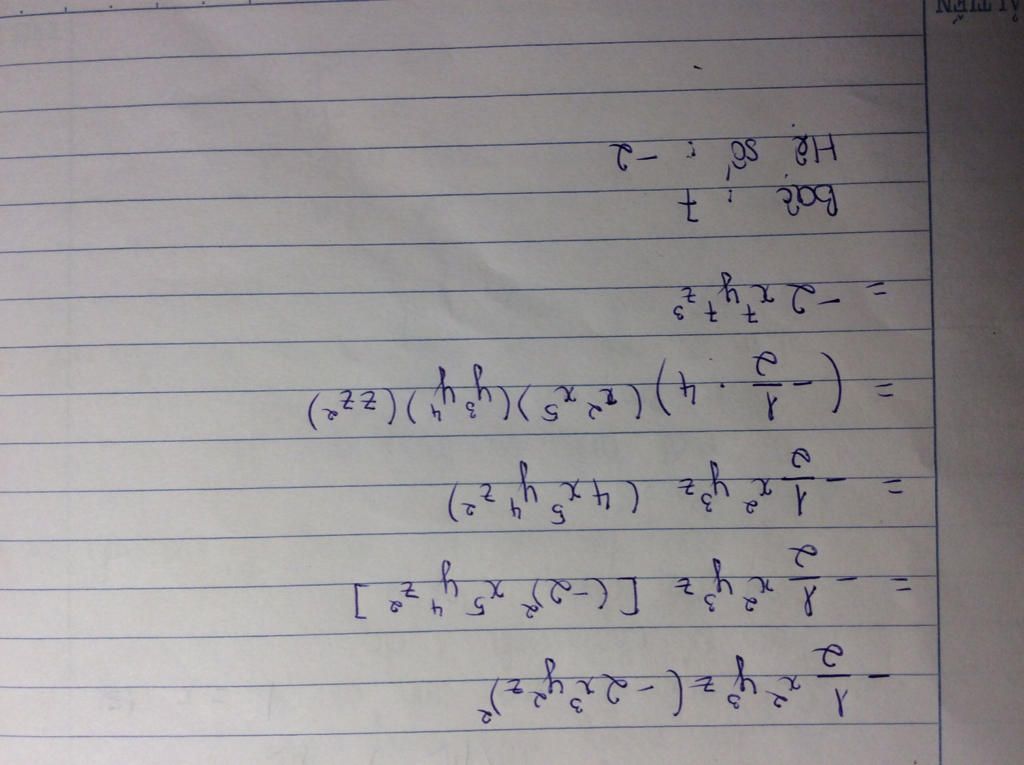 -1/2 x²y³z (-2x³y²z)²
= -1/2 x²y³z [(-2)² x⁵y⁴z²]
= -1/2 x²y³z (4x⁵y⁴z²)
= (-1/2 . 4) (x²x⁵)(y³y⁴)(zz²)
= -2x⁷y⁷z³
Bậc : 7
Hệ số : -2